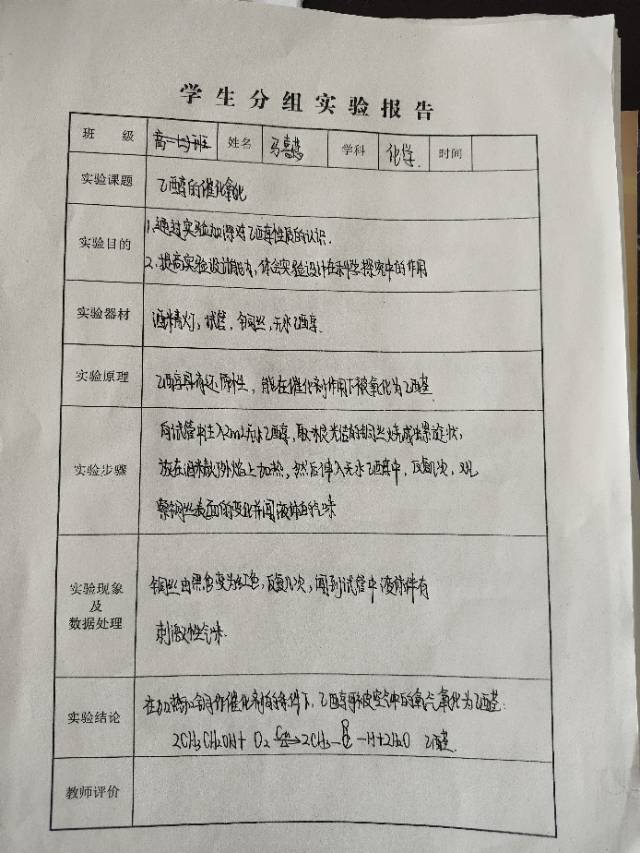 学生分组实验报告
班级 高一 班 姓名 马 学科 化学 时间
实验课题 乙醇的催化氧化
实验目的 1.通过实验加深对乙醇性质的认识.
2.提高实验设计能力,体会实验设计在科学探究中的作用
实验器材 酒精灯,试管,铜丝,无水乙醇.
实验原理 乙醇具有还原性,能在催化剂作用下被氧化为乙醛
向试管中注入2mL无水乙醇,取一根光洁的铜丝绕成螺旋状,
实验步骤 放在酒精灯外焰上加热,然后伸入无水乙醇中,反复几次,观
察铜丝表面的变化并闻液体的气味
实验现象
及
数据处理
铜丝由黑色变为红色,反复几次,闻到试管中液体伴有
刺激性气味.
实验结论 在加热和铜作催化剂的条件下,乙醇 被空气中的氧气氧化为乙醛:
2CH3CH2OH+O2 ⇌ 2CH3-C-H+2H2O 乙醛
教师评价